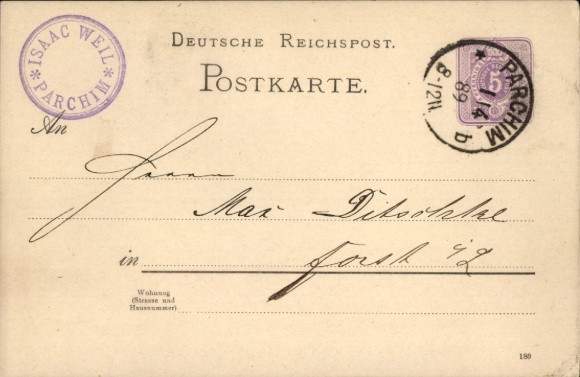 * ISAAC WEIL *
PARCHIM
DEUTSCHE REICHSPOST.
POSTKARTE.
5
* PARCHIM b
1 14
89
8-12N.
An
Herrn
Max Ditschke
in Forst i/L
Wohnung
(Strasse und
Hausnummer)
189